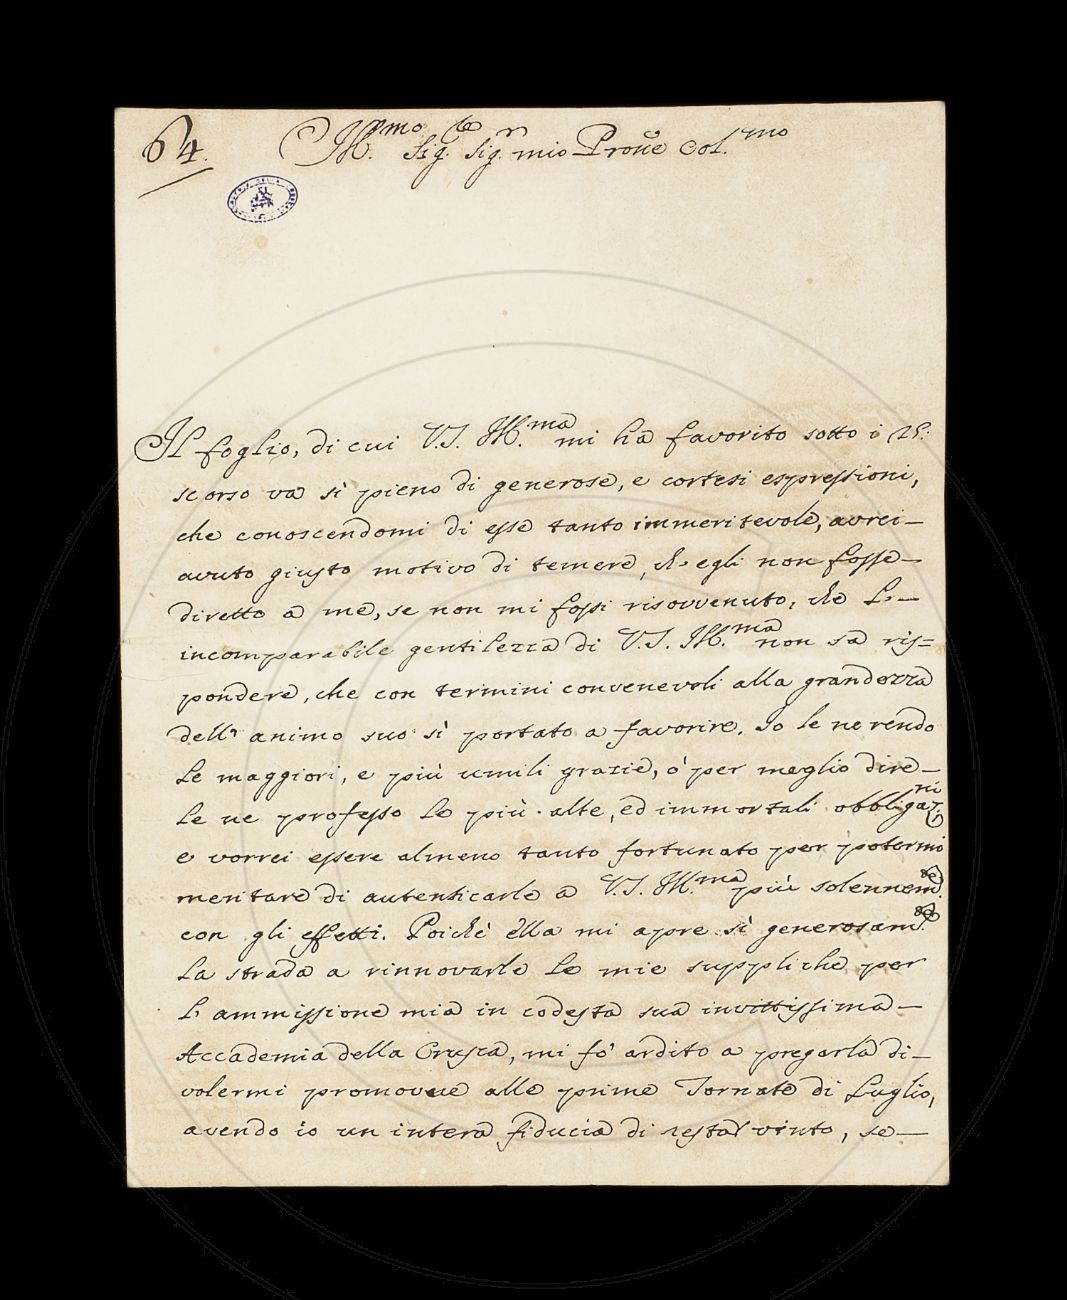 64.
Ill.mo Sig.re Sig.r mio Prone Col.mo
Il foglio, di cui V.S. Ill.ma mi ha favorito sotto i 25.
scorso va sì pieno di generose, e cortesi espressioni,
che conoscendomi di esse tanto immeritevole, avrei
avuto giusto motivo di temere, ch' egli non fosse
diretto a me, se non mi fossi risovvenuto, che l'
incomparabile gentilezza di V.S. Ill.ma non sa ris=
pondere, che con termini convenevoli alla grandezza
dell' animo suo sì portato a favorire. Io le ne rendo
le maggiori, e più umili grazie, ò per meglio dire
le ne professo le più alte, ed immortali obbligaz.ni
e vorrei essere almeno tanto fortunato per potermi
meritare di autenticarle a V.S. Ill.ma più solennem.te
con gli effetti. Poichè ella mi apre sì generosam.te
la strada a rinnovarle le mie suppliche per
l' ammissione mia in codesta sua invittissima
Accademia della Crusca, mi fo' ardito a pregarla di
volermi promovere alle prime Tornate di Luglio,
avendo io un intera fiducia di restar vinto, se